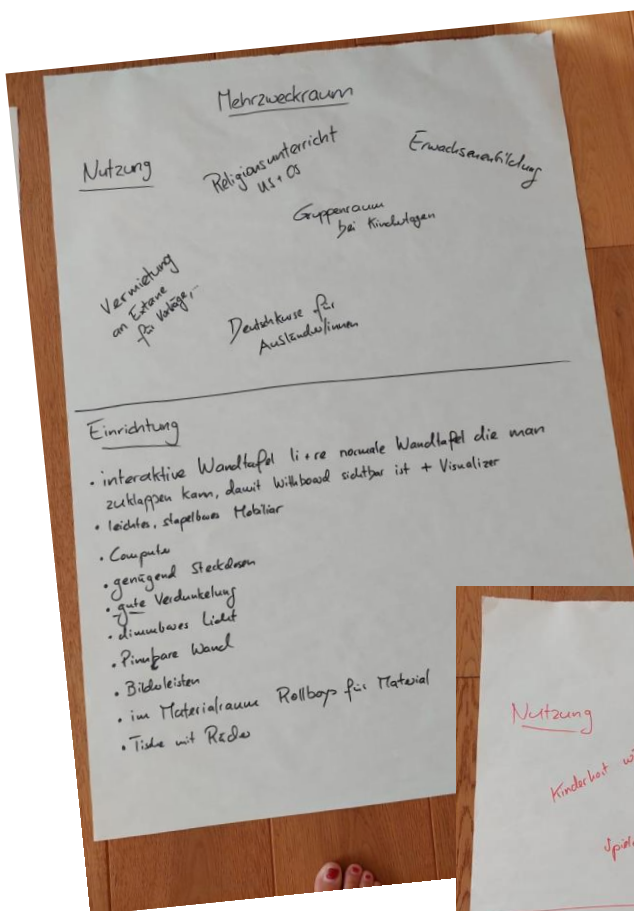 Mehrzweckraum
Nutzung
Religionsunterricht
US + OS
Erwachsenenbildung
Gruppenraum
bei Kindertagen
Vermietung
an Externe
für Vorträge,-
Deutschkurse für
Ausländer/innen
Einrichtung
• interaktive Wandtafel li + re normale Wandtafel die man
zuklappen kann, damit Withboard sichtbar ist + Visualizer
• leichtes, stapelbares Mobiliar
• Computer
• genügend Steckdosen
• gute Verdunkelung
• dimmbares Licht
• Pinnbare Wand
• Bilderleisten
• im Materialraum Rollboys für Material
• Tische mit Räder
Nutzung